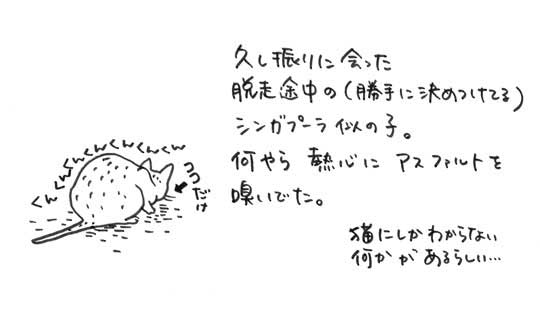 久し振りに会った
脱走途中の(勝手に決めつけてる)
シンガプーラ似の子。
何やら熱心にアスファルトを
嗅いでた。
猫にしかわからない
何かがあるらしい…
くんくんくんくんくんくんくん
ココ
だけ